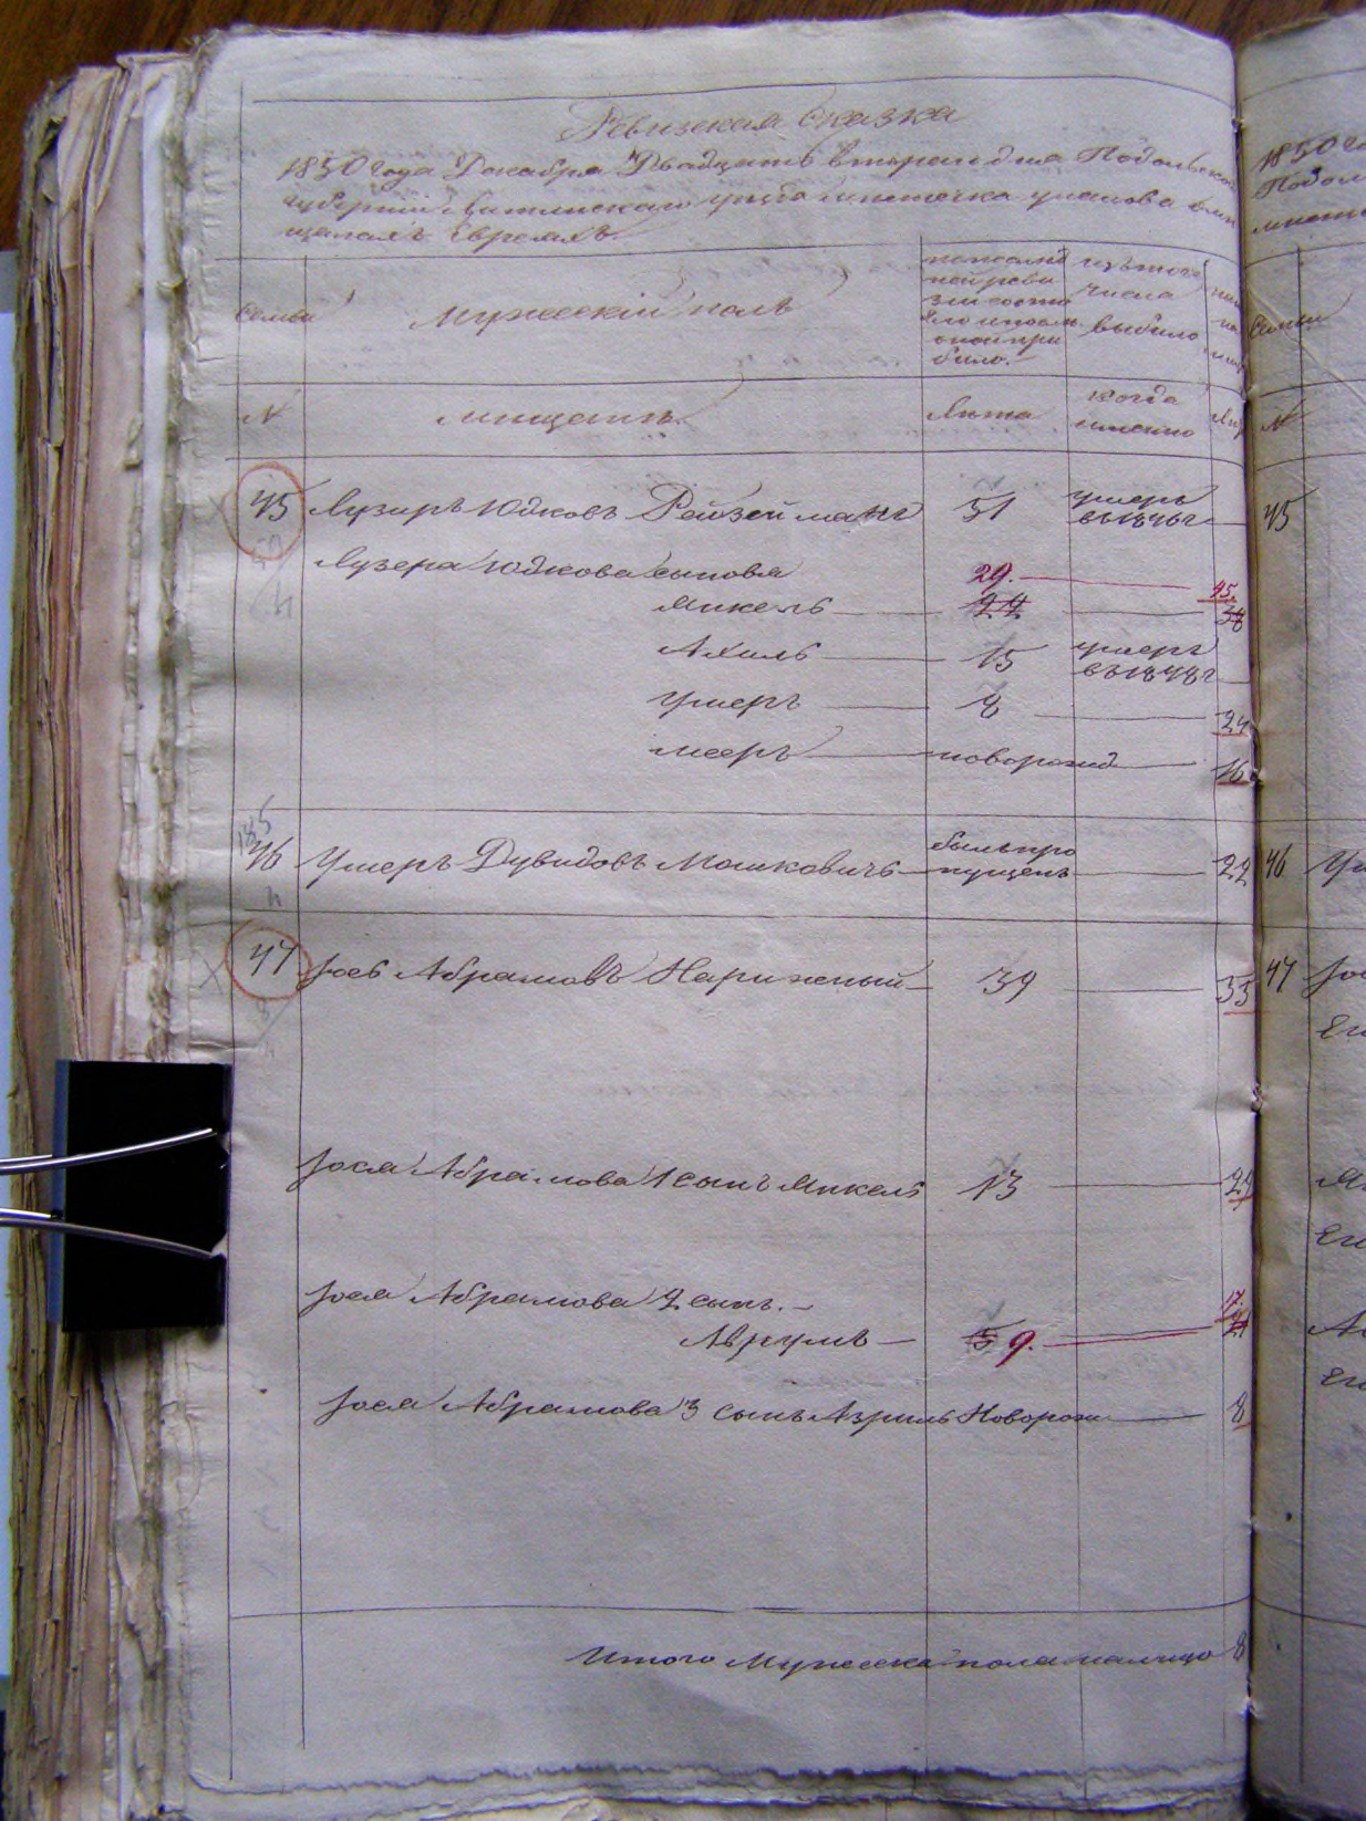 Ревизская Сказка
1850 года Декабря Двадцать втораго дня Подольской
губернии Литинскаго уезда местечка уланова
мещанахъ Евреяхъ.
Семьи
Мужескій полъ
по последней ревизіи состояло и после оной прибыло.
изъ того числа выбыло
Семьи
№
мещанъ.
Лѣта
когда именно
№
45 Лузеръ Юдковъ Рейзейманъ 51 умеръ въ 1848 г 45
Лузера Юдкова сыновья 29. 45.
Микель 22 38
Ахиль 15 умеръ въ 1848 г
Ушеръ 8 24
Мееръ новорожд 16
185
46 Ушеръ Дувидовъ Мошковичъ былъ пропущенъ 22 46
47 Іось Абрамовъ Нариженый 39 55 47
Іося Абрамова 1 сынъ Микель 13 29
Іося Абрамова 2 сынъ.
Аврумъ 5 9. 17. 21
Іося Абрамова 3 сынъ Азриль Новорожд 8
Итого Мужеска пола налицо 8